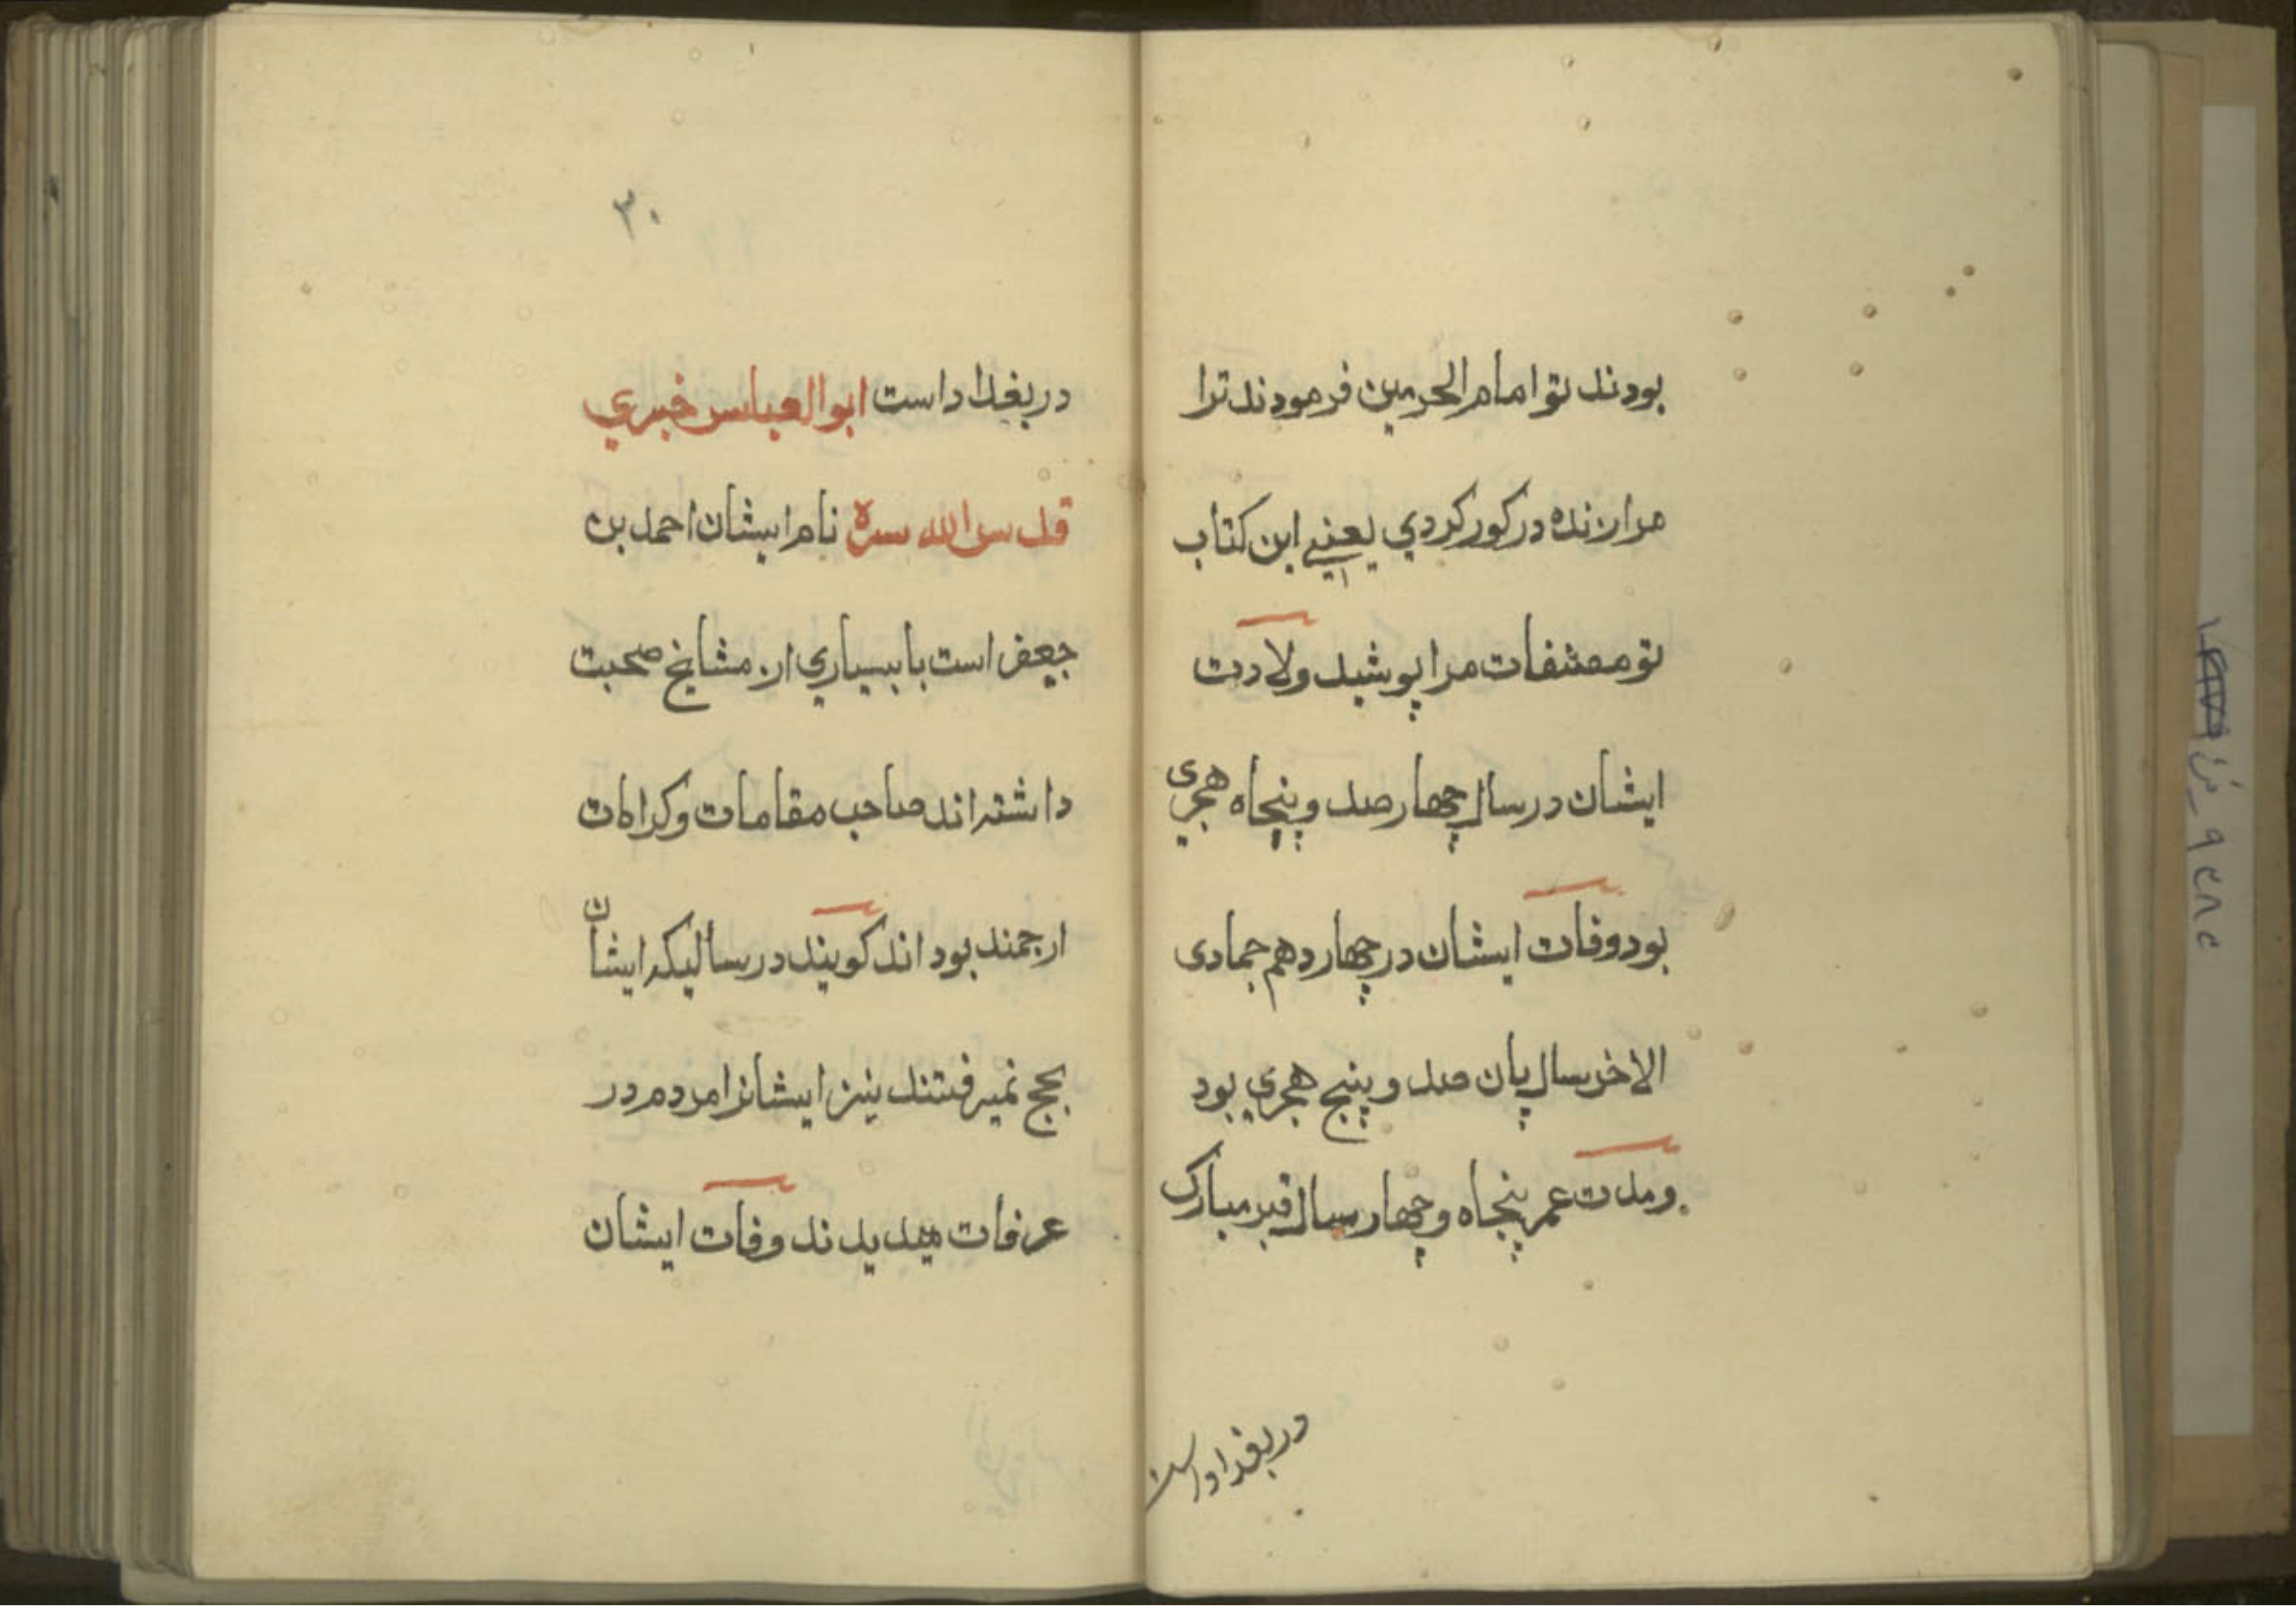 بودند تو امام الحرمین فرمودند ترا
مرا زنده در کور کردي یعنے این کتاب
تو مصنفات مرا پوشید ولادت
ایشان در سال چهار صد و پنجاه هجری
بود وفات ایشان در چهار دهم جمادی
الاخر سال پان صد و پنج هجري بود
و مدت عمر پنجاه و چهار سال قبر مبارک
در بغداد است
۳۰
در بغداد است ابو العباس خبري
قدس الله سره نام ایشان احمد بن
جعفر است با بسیاري از مشایخ صحبت
داشته اند صاحب مقامات و کرامات
ارجمند بود اند کویند در سالیکه ایشان
بحج نمیرفتند نیز ایشانرا مردم در
عرفات میدیدند وفات ایشان